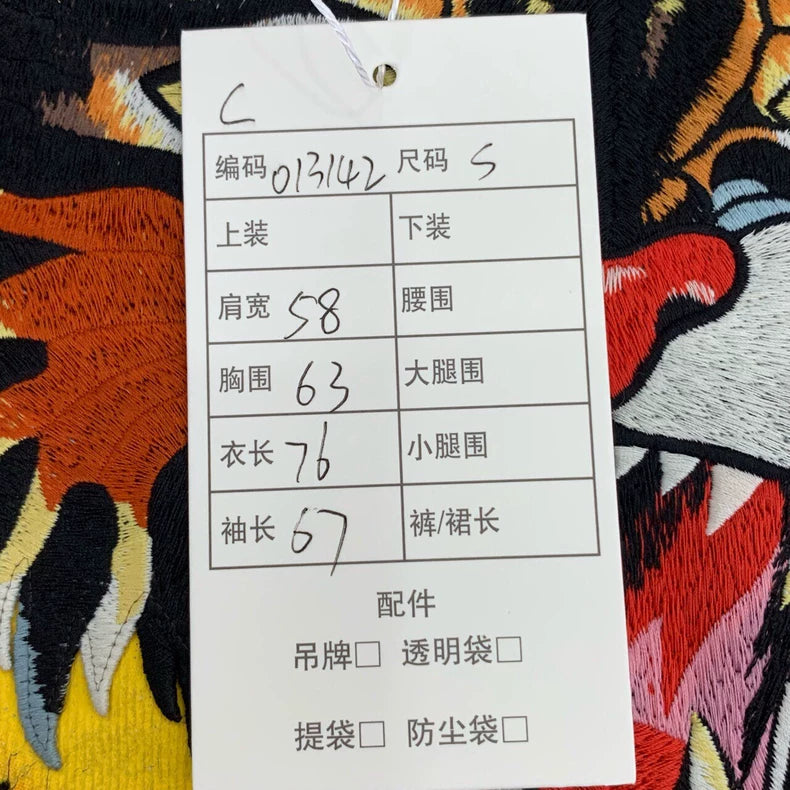 C
编码 013142 尺码 S
上装 下装
肩宽 58 腰围
胸围 63 大腿围
衣长 76 小腿围
袖长 67 裤/裙长
配件
吊牌□ 透明袋□
提袋□ 防尘袋□